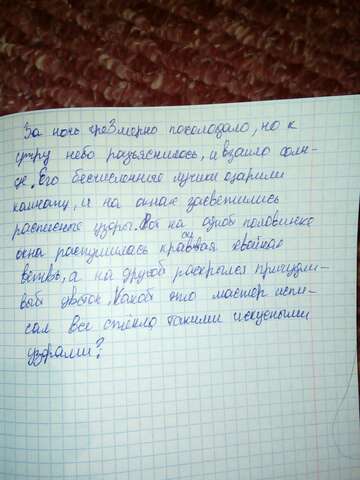 За ночь чрезмерно похолодало, но к
утру небо разъяснилось, и взошло солн-
це. Его бесчисленные лучики озарили
комнату, и на окнах засветились
расписные узоры. Вот на одной половинке
окна распушилась красивая хвойная
ветвь, а на другой раскрылся причудли-
вый цветок. Какой это мастер испи-
сал все стекло такими искусными
узорами?